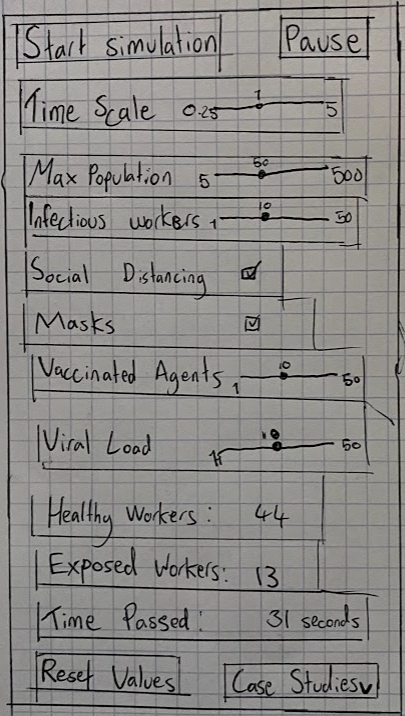 Start simulation Pause
1
Time Scale 0.25 5
50
Max Population 5 500
10
Infectious workers 1 50
Social Distancing
Masks
10
Vaccinated Agents 1 50
10
Viral Load 50
Healthy Workers: 44
Exposed Workers: 13
Time Passed: 31 seconds
Reset Values Case Studies